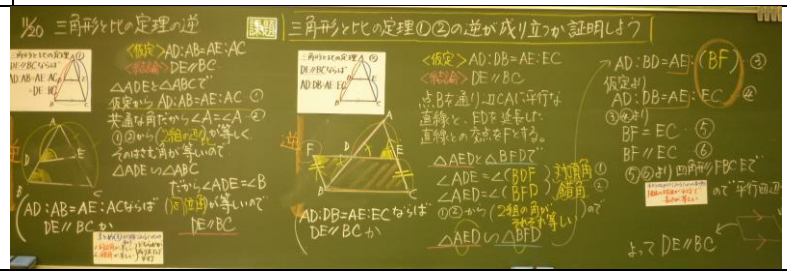 11/20 三角形と比の定理の逆
課題 三角形と比の定理①②の逆が成り立つか証明しよう
三角形と比の定理①
DE//BCならば
AD:AB=AE:AC
=DE:BC
<仮定>AD:AB=AE:AC
<結論>DE//BC
△ADEと△ABCで
仮定からAD:AB=AE:AC ①
共通な角だから∠A=∠A ②
①②から(2組の辺の比が等しく
そのはさむ角が等しいので
△ADE∽△ABC
だから∠ADE=∠B
(同位角)が等しいので
DE//BC
逆
A
D
E
B
C
(AD:AB=AE:ACならば
DE//BCか
三角形と比の定理②
DE//BCならば
AD:DB=AE:EC
逆
A
F
D
E
B
C
(AD:DB=AE:ECならば
DE//BCか
<仮定>AD:DB=AE:EC
<結論>DE//BC
点Bを通り辺CAに平行な
直線と、EDを延長した
直線との交点をFとする。
△AEDと△BFDで
∠ADE=∠(BDF)対頂角 ①
∠AED=∠(BFD)錯角 ②
①②から(2組の角が
それぞれ等しい)ので
△AED∽△BFD
AD:BD=AE:(BF) ③
仮定より
AD:DB=AE:EC ④
③④より
BF=EC ⑤
BF//EC ⑥
⑤⑥より四角形FBCEで
ので平行四辺
よってDE//BC